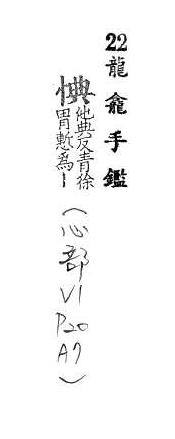 22 龍龕手鑑
㥏他典反青徐
謂慙為丨
(心部 V1 P20 A9)